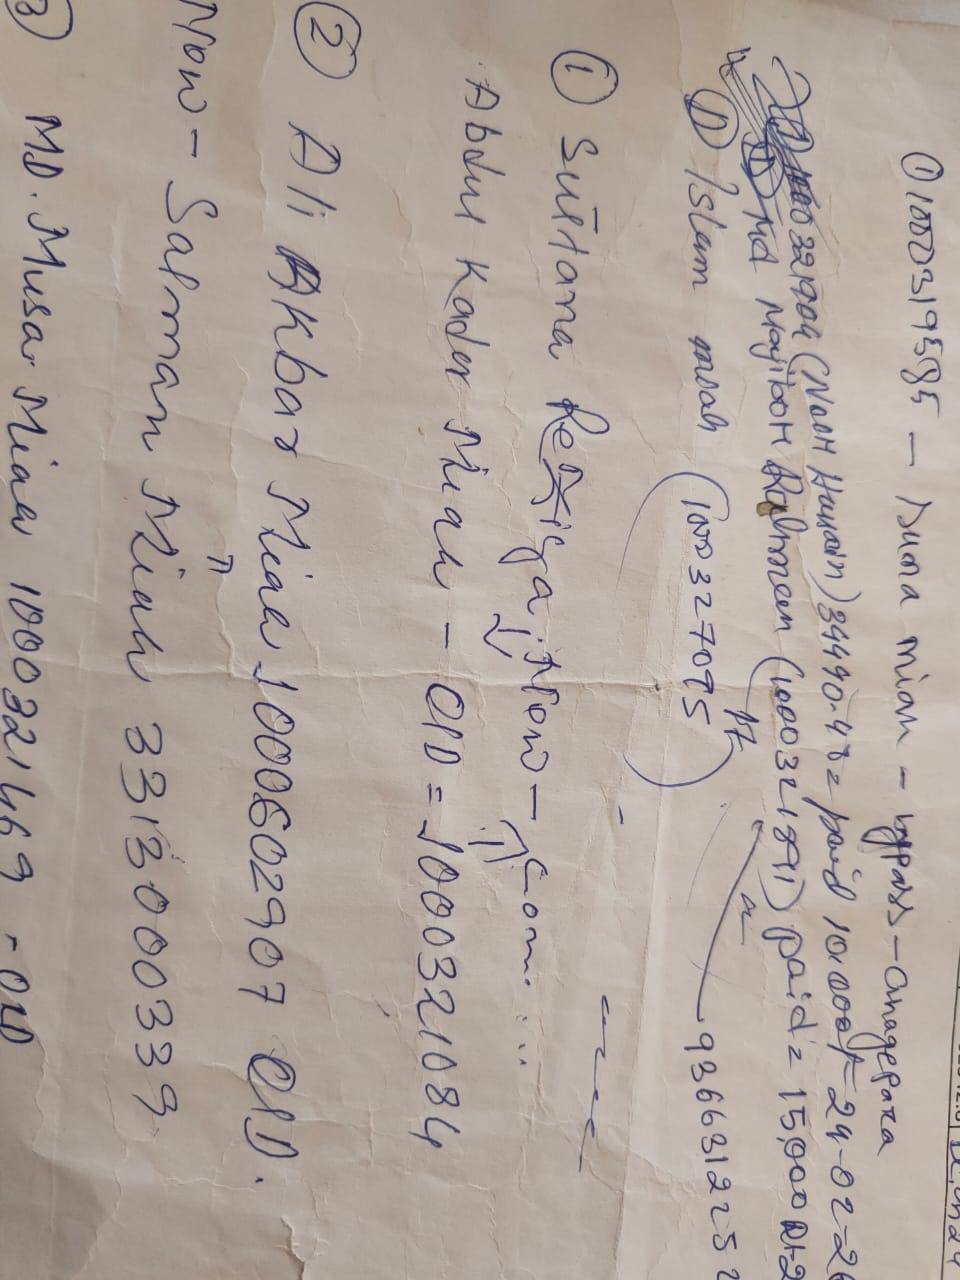 ① 100319585 – Suma mian – bypass – anagepara
(Noon Hunain) 34490.48 = paid 10.000/- 24-02-2
① Md Mojiboн Rahmeen (100321891) paid = 15,000
① Islam miah (100327095) 9366312252
① Sultana Reziya, Now –
Abdul Kader Miah – OlD = 100321084
② Ali Akbar Miae 1006602907 OlD.
Now – Salman Miah 3313000339
③ MD. Musa Miae 100321469 - OlD